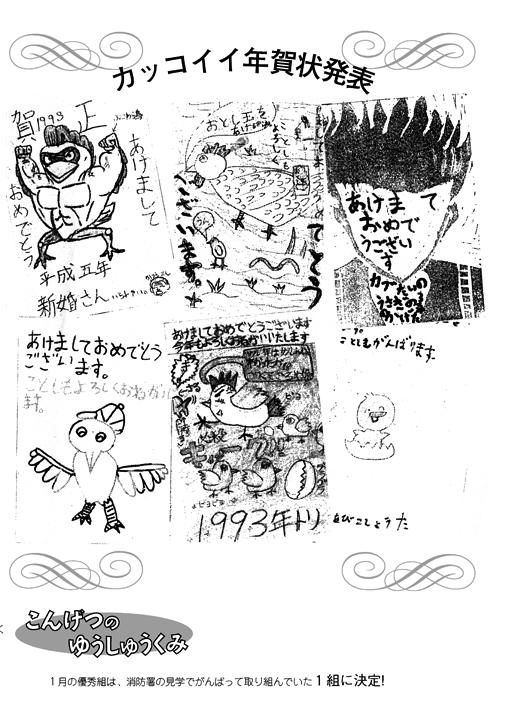 カッコイイ年賀状発表
賀 1993 正
あけまして
おめでとう
平成五年
新婚さん
おとし玉を
ことしも
よろしく
ございます。
でとう
あけま て
おめで
うござい
す
あけましておめでとう
ございます。
ことしもよろしくおねがい
ます。
あけましておめでとうございます
今年もよろしくおねがいいたします
ピヨ
必殺
ピヨピヨ
1993年トリ
ことしもがんばります
こんげつの
ゆうしゅうくみ
1月の優秀組は、消防署の見学でがんばって取り組んでいた1組に決定!